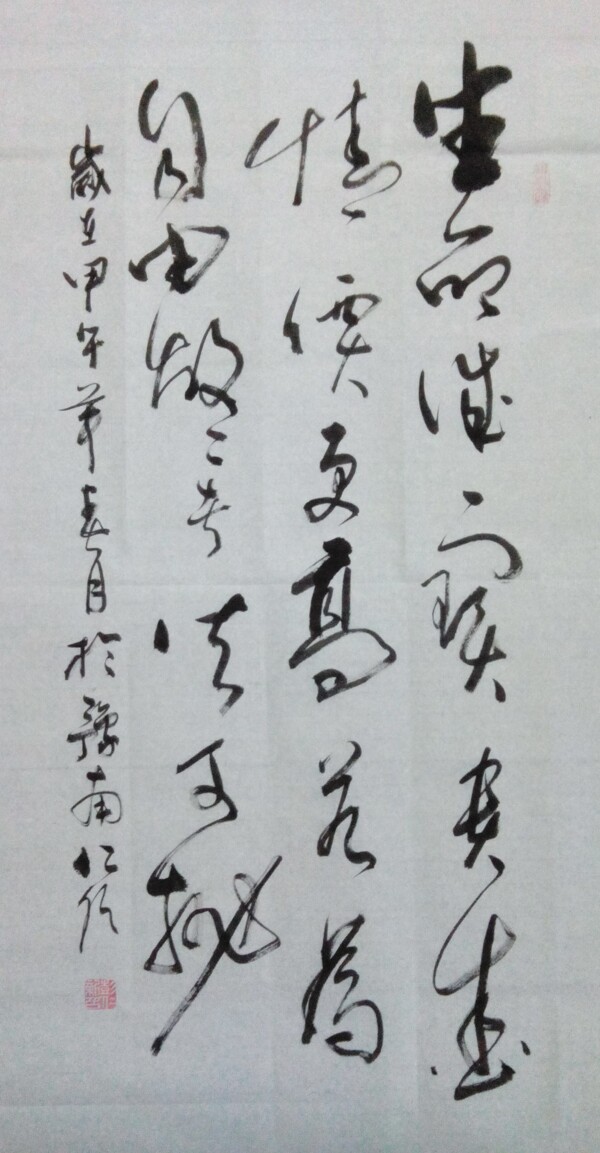 生命誠寶貴愛
情價更高若為
自由故二者皆可拋
歲在甲午年春月於豫南仁